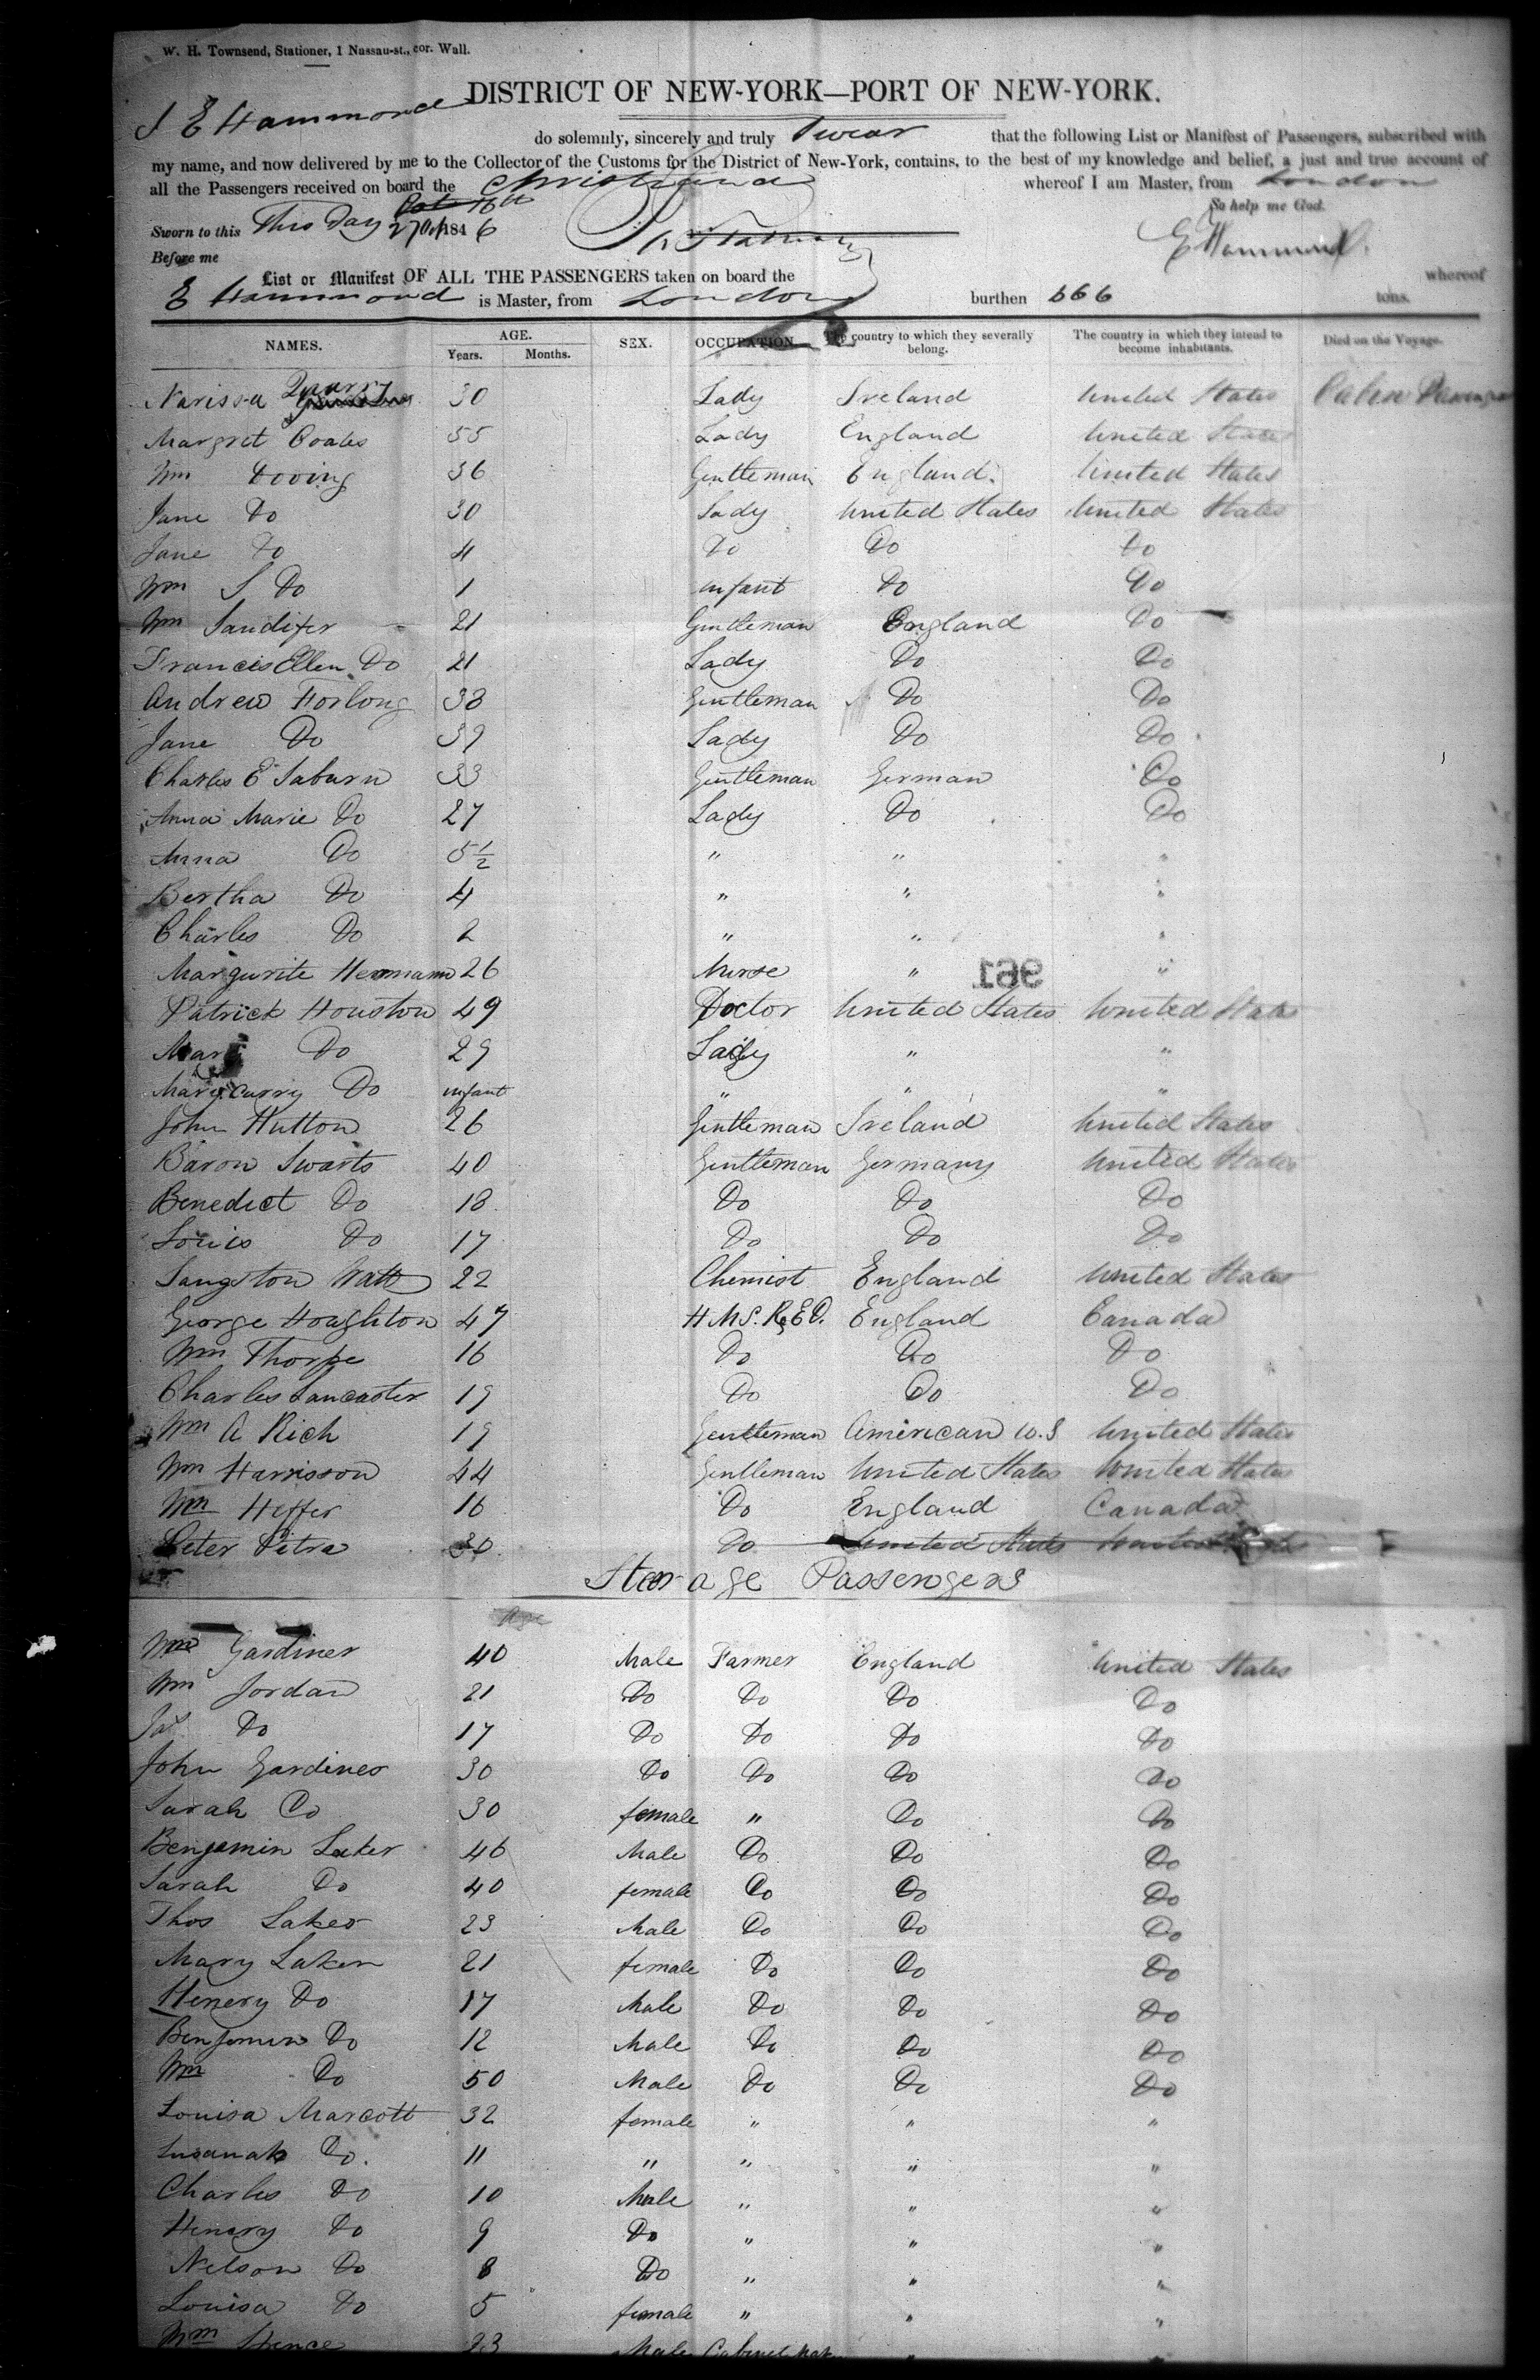 W. H. Townsend, Stationer, 1 Nassau-st., cor. Wall.
DISTRICT OF NEW-YORK—PORT OF NEW-YORK.
I E Hammond do solemnly, sincerely and truly Swear that the following List or Manifest of Passengers, subscribed with
my name, and now delivered by me to the Collector of the Customs for the District of New-York, contains, to the best of my knowledge and belief, a just and true account of
all the Passengers received on board the whereof I am Master, from London
So help me God.
Sworn to this This Day 27 Oct 1846
E Hammond
Before me
List or Manifest OF ALL THE PASSENGERS taken on board the whereof
E Hammond is Master, from London burthen 666 tons.
NAMES. AGE. Years. Months. SEX. OCCUPATION. The country to which they severally belong. The country in which they intend to become inhabitants. Died on the Voyage.
Narissa Quarry 30 Lady Ireland United States Cabin Passengers
Margret Coates 55 Lady England United States
Wm Dooing 36 Gentleman England United States
Jane Do 30 Lady United States United States
Jane Do 4 Do Do Do
Wm S Do 1 infant Do Do
Wm Sandifer 21 Gentleman England Do
Francis Ellen Do 21 Lady Do Do
Andrew Forlong 38 Gentleman Do Do
Jane Do 39 Lady Do Do
Charles E Saburn 33 Gentleman German Do
Anna Marie Do 27 Lady Do Do
Anna Do 5 1/2 " " "
Bertha Do 4 " " "
Charles Do 2 " " "
Margurite Hermann 26 Nurse " "
961
Patrick Houston 49 Doctor United States United States
Mary Do 29 Lady " "
Mary Curry Do infant " " "
John Hutton 26 Gentleman Ireland United States
Baron Swarts 40 Gentleman Germany United States
Benedict Do 18 Do Do Do
Louis Do 17 Do Do Do
Langston Watt 22 Chemist England United States
George Hoaghton 47 H M S. R E D. England Canada
Wm Thorpe 16 Do Do Do
Charles Lancaster 19 Do Do Do
Wm A Rich 19 Gentleman American U.S United States
Wm Harrisson 44 Gentleman United States United States
Wm Heffer 16 Do England Canada
Peter Petra 30 Do United States United States
Sterage Passengers
Age
Wm Gardiner 40 Male Farmer England United States
Wm Jordan 21 Do Do Do Do
Jas Do 17 Do Do Do Do
John Gardiner 30 Do Do Do Do
Sarah Do 30 female " Do Do
Benjamin Laker 46 Male Do Do Do
Sarah Do 40 female Do Do Do
Thos Laker 23 Male Do Do Do
Mary Laker 21 female Do Do Do
Henery Do 17 Male Do Do Do
Benjamin Do 12 Male Do Do Do
Wm Do 50 Male Do Do Do
Louisa Marcott 32 female " " "
Susanah Do. 11 " " " "
Charles Do 10 Male " " "
Henery Do 9 Do " " "
Nelson Do 8 Do " " "
Louisa Do 5 female " " "
Wm 23 Male Cabinet Mak "